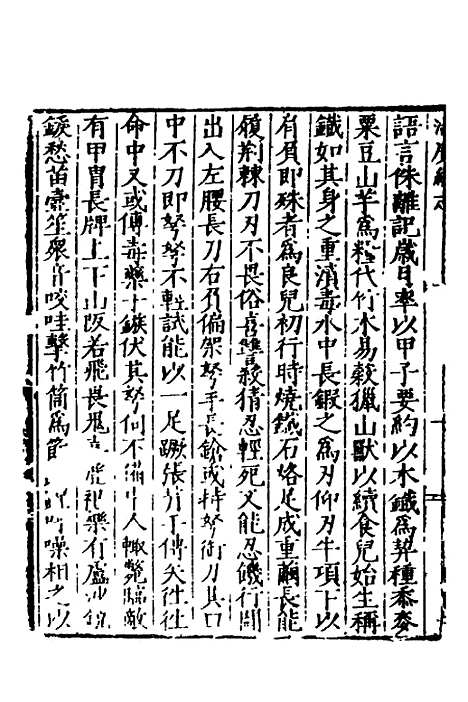 語言侏離記歲月率以甲子要約以木鐵為契種黍麥
粟豆山羊為糧代竹木易穀獵山獸以續食兒始生稱
鐵如其身之重漬毒水中長鍛之為刀仰刀牛項下以
肩負即殊者為良兒初行時燒鐵石烙足成重繭長能
履荊棘刀刃不畏俗喜讐殺猜忍輕死又能忍饑行鬭
出入左腰長刀右負偏架弩手長鎗或持弩銜刀其口
中不刀即弩弩不輕試能以一足蹶張于傳矢往往
命中又或傳毒藥于鏃伏其弩何不備中人輒斃臨敵
有甲冑長牌上下山阪若飛畏鬼祀樂有盧沙
鏃愁苗壺笙眾音咬哇擊竹筒為節噪相之以